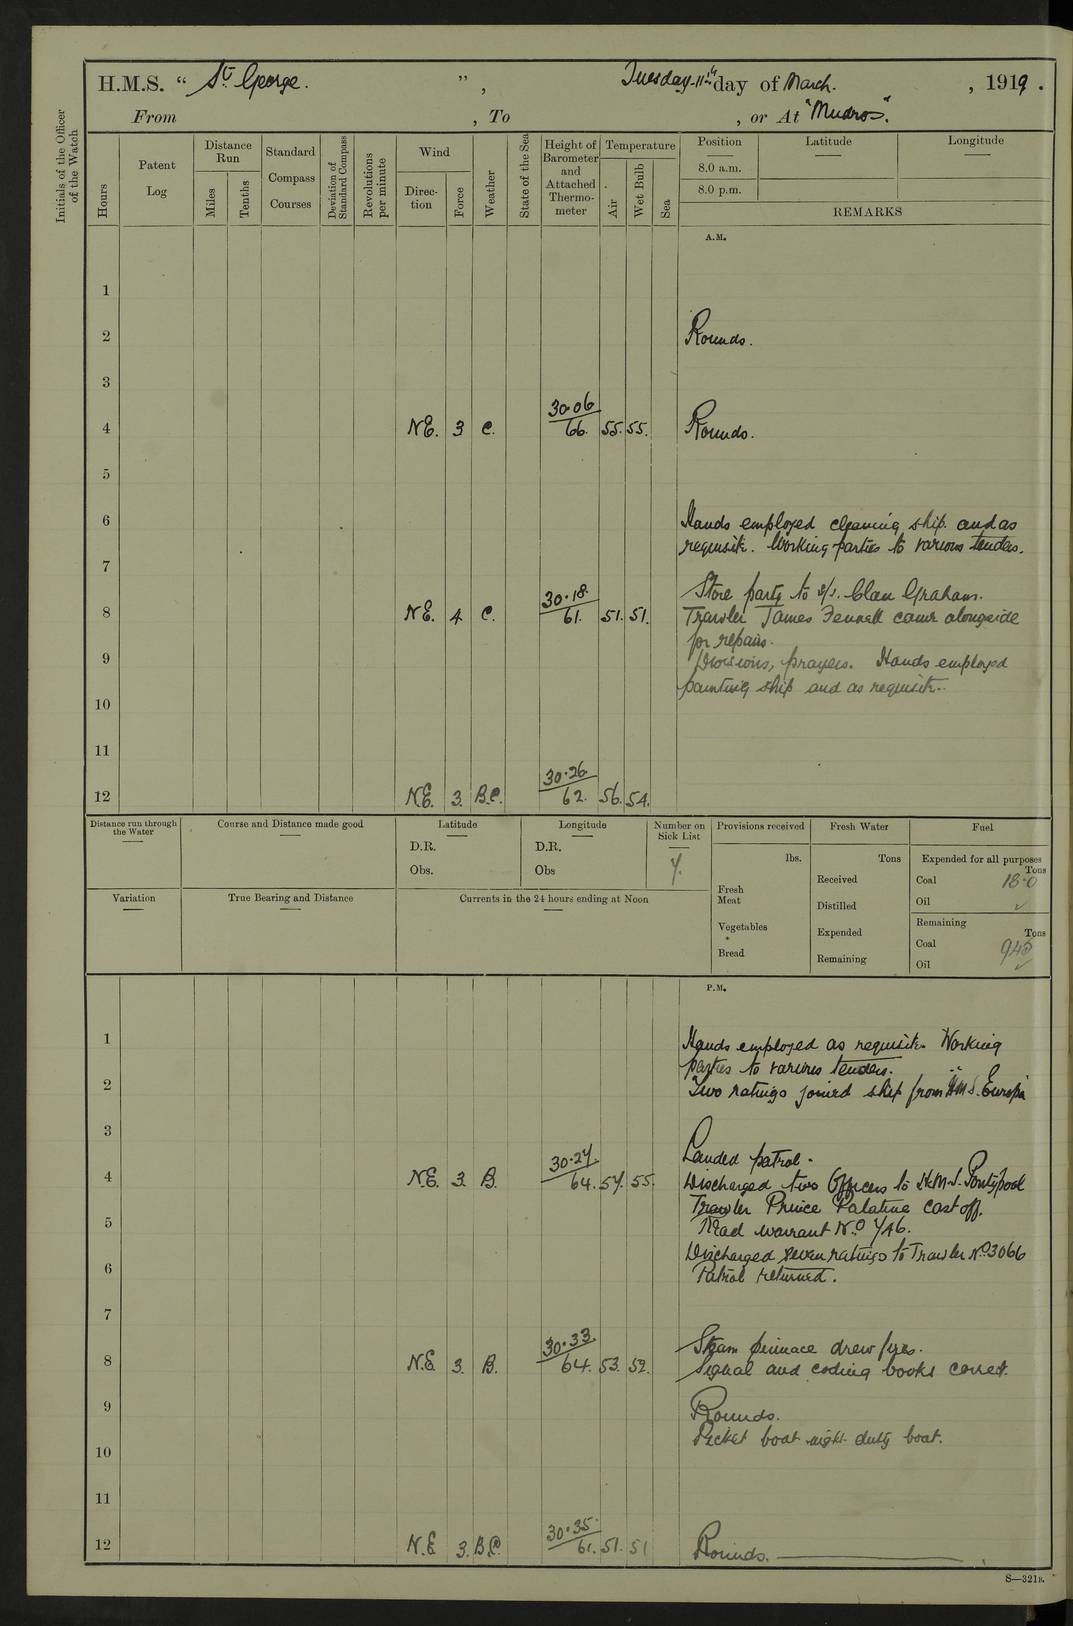 H.M.S. “ St. George. ”, Tuesday 11th day of March. , 1919.
From , To , or At "Mudros".
Initials of the Officer of the Watch
Hours
Patent Log
Distance Run
Miles
Tenths
Standard Compass Courses
Deviation of Standard Compass
Revolutions per minute
Wind
Direction
Force
Weather
State of the Sea
Height of Barometer and Attached Thermometer
Temperature
Air
Wet Bulb
Sea
Position
Latitude
Longitude
8.0 a.m.
8.0 p.m.
REMARKS
A.M.
1
2 Rounds.
3
30.06
4 N.E. 3 C. 66. 55. 55. Rounds.
5
6 Hands employed cleaning ship and as
requisite. Working parties to various tenders.
7
Store party to s/s. Clan Graham.
30.18
8 N.E. 4 C. 61. 51. 51. Trawler James Fennell came alongside
for repairs.
9 Divisions, prayers. Hands employed
painting ship and as requisite.
10
11
30.26
12 N.E. 3. B.C. 62. 56. 54.
Distance run through the Water
Course and Distance made good
Latitude
D.R.
Obs.
Longitude
D.R.
Obs
Number on Sick List
7.
Provisions received
lbs.
Fresh Meat
Vegetables
Bread
Fresh Water
Tons
Received
Distilled
Expended
Remaining
Fuel
Expended for all purposes
Tons
Coal 18.0
Oil ✓
Remaining
Tons
Coal 945
Oil ✓
Variation
True Bearing and Distance
Currents in the 24 hours ending at Noon
P.M.
1 Hands employed as requisite. Working
parties to various tenders.
2 Two ratings joined ship from H.M.S. "Europa"
3
Landed patrol.
30.27.
4 N.E. 3. B. 64. 57. 55. Discharged two Officers to H.M.S. Pontypool
Trawler Prince Palatine cast off.
5 Read warrant No. 746.
Discharged seven ratings to Trawler No. 3066
6 Patrol returned.
7
Steam pinnace drew fires.
30.33.
8 N.E 3. B. 64. 53. 52. Signal and coding books correct.
9 Rounds.
Picket boat night duty boat.
10
11
30.35
12 N.E 3. B.C. 61. 51. 51 Rounds.
S—321B.